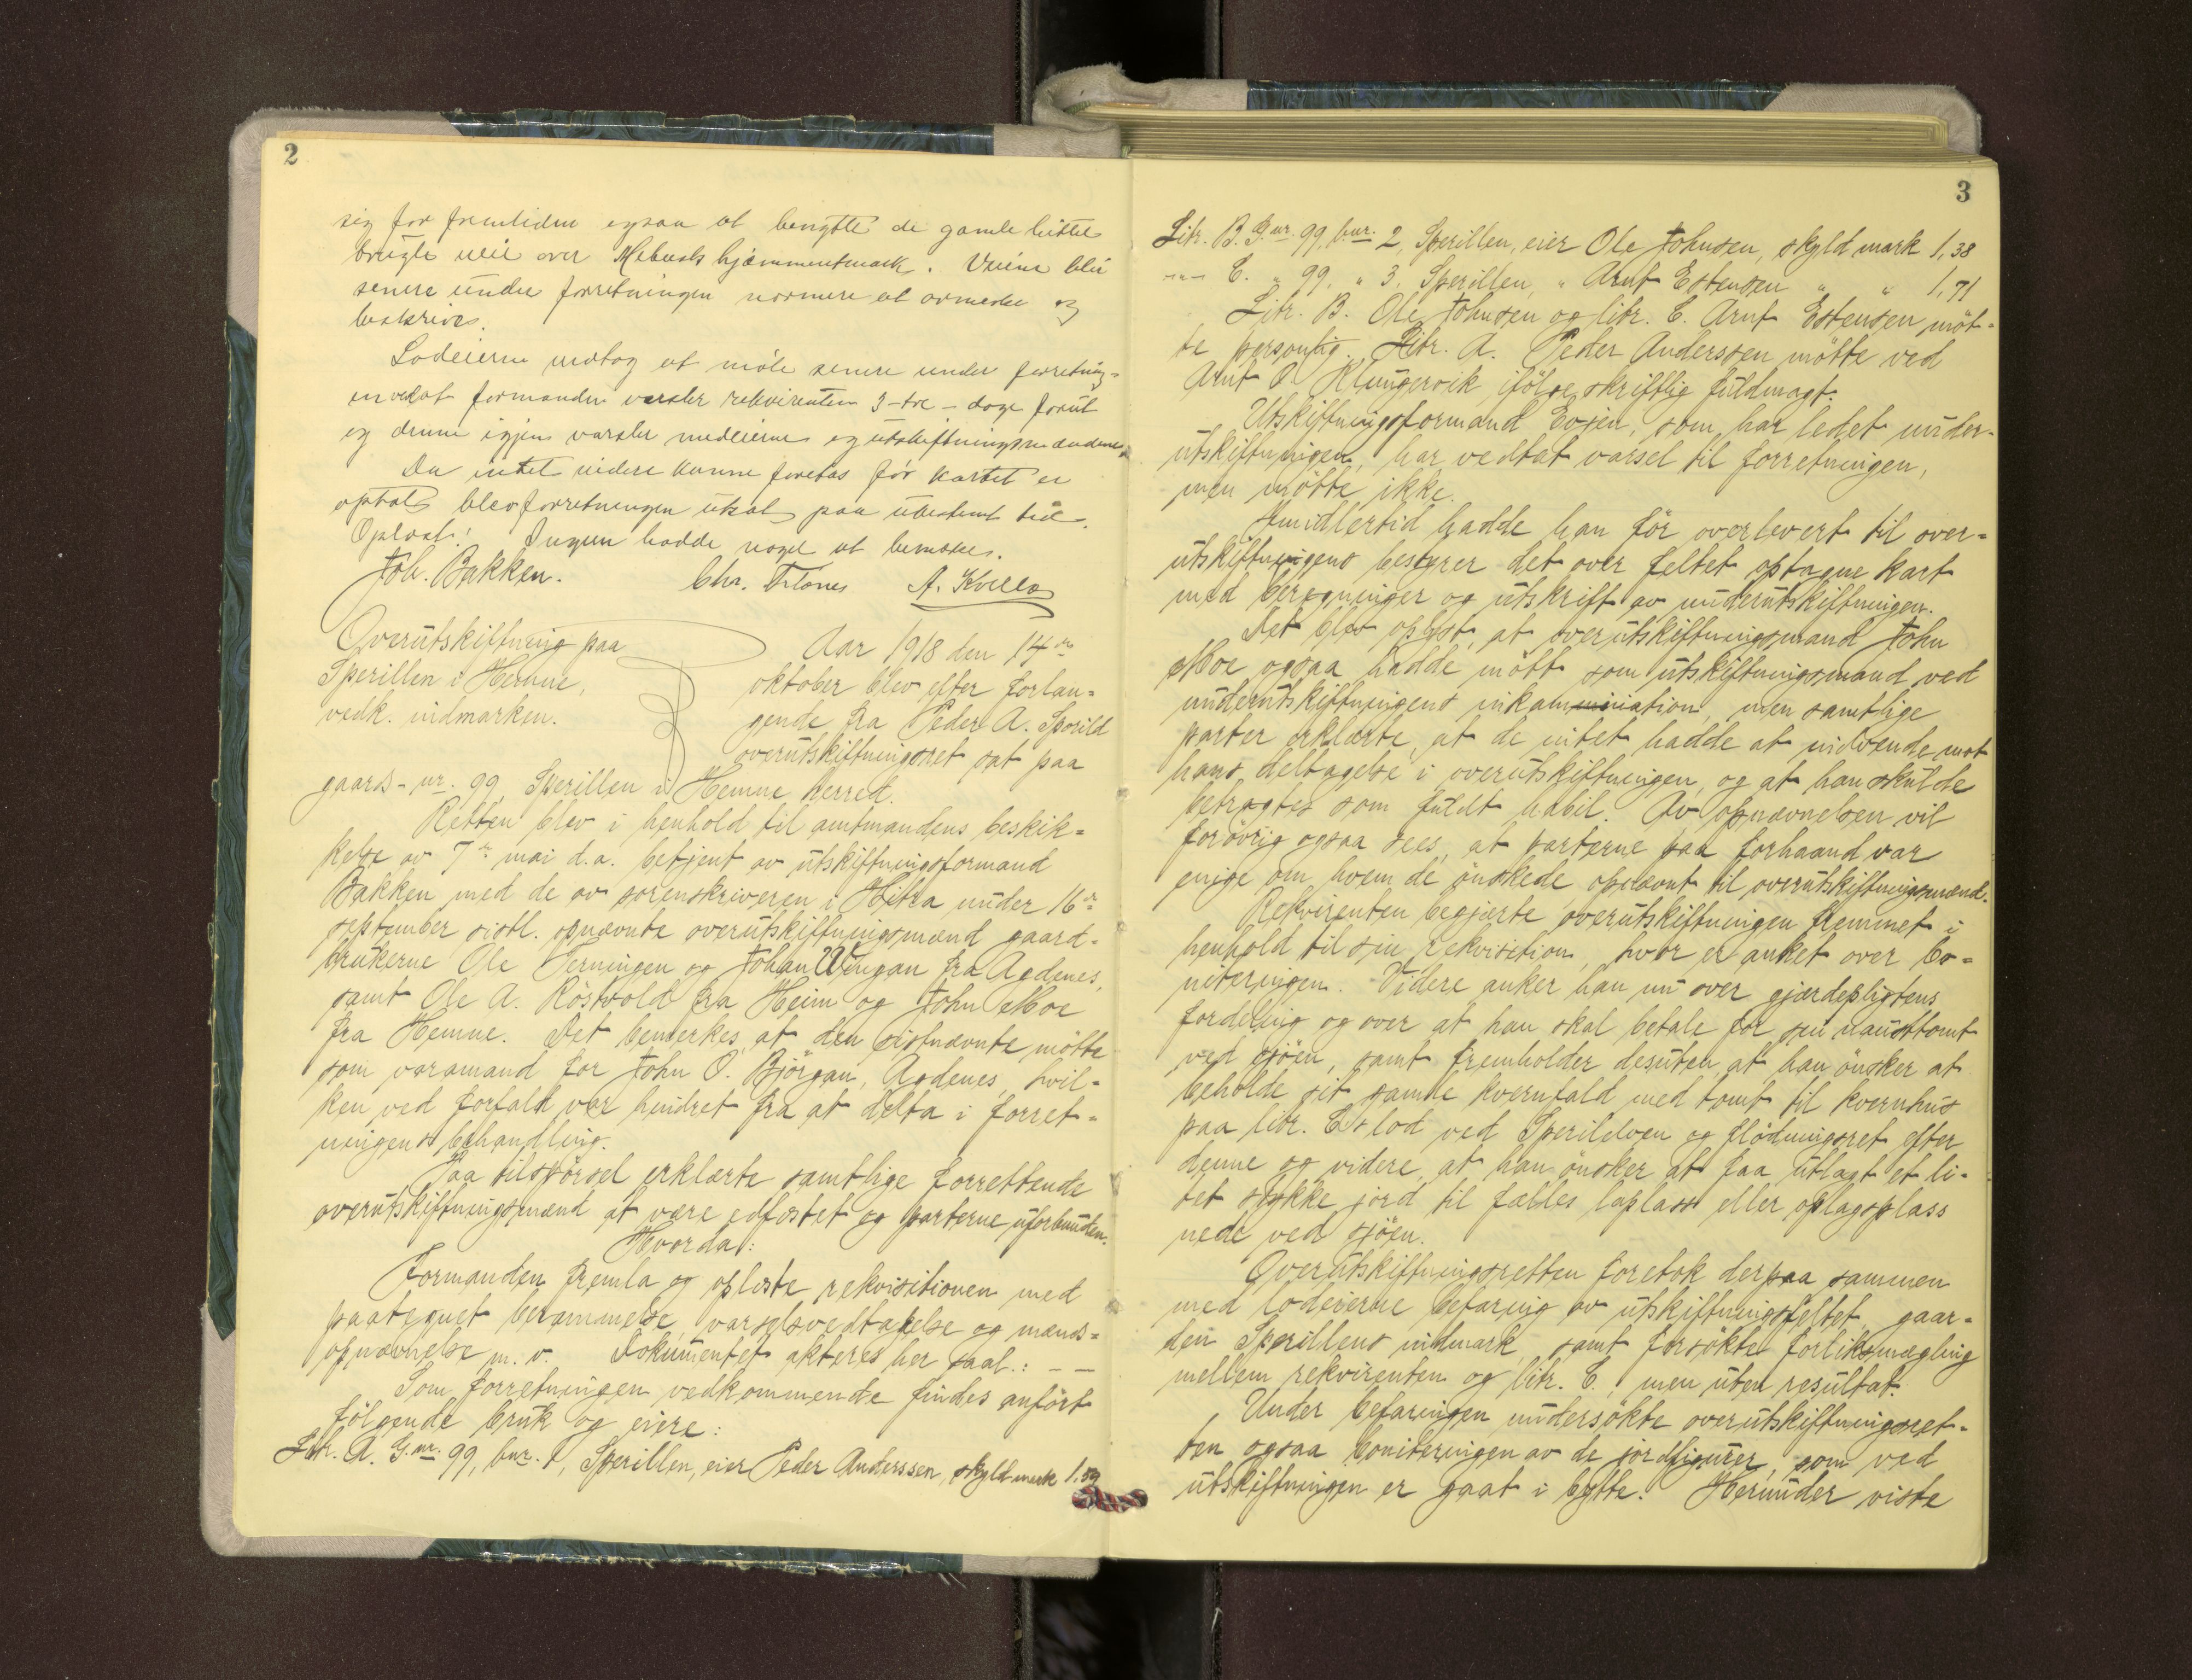 2
sig for fremtiden ogsaa at benytte de gamle hittil
brugte veie over Mebust hjemmeutmark. Veiene blir
senere under forretningen nærmere at avmerke og
beskrives.
Lodeierne vedtog at møte senere under forretning-
en ved at formanden varsler rekvirenten 3 - tre - dage forut
og denne igjen varsler medeierne og utskiftningsmændene.
Da intet videre kunne foretas før kartet er
optat blev forretningen utsat paa ubestemt tid.
Oplæst! Ingen hadde noget at bemerke.
Joh. Bakken. Chr. A. Kvello
Overutskiftning paa
Sperillen i Hemne,
vedk. indmarken.
Aar 1918 den 14de
oktober blev efter forlan-
gende fra Peder A. Sperild
overutskiftningsret sat paa
gaards-nr. 99 Sperillen i Hemne herred.
Retten blev i henhold til amtmandens beskik-
kelse av 7de mai d.a. betjent av utskiftningsformand
Bakken med de av sorenskriveren i Hitra under 16de
september sistl. opnævnte overutskiftningsmænd gaard-
brukerne Ole Terningen og Johan Wingan fra Agdenes,
samt Ole A. Röstvold fra Heim og John Moe
fra Hemne. Det bemerkes, at den sistnævnte mötte
som varamand for John O. Björgan, Agdenes, hvil-
ken ved forfald var hindret fra at delta i forret-
ningens behandling.
Paa tilspörsel erklærte samtlige forrettende
overutskiftningsmænd at være edfæstet og parterne uforbunden.
Hvorda:
Formanden fremla og oplæste rekvisitionen med
paategnet berammelse, varselsvedtakelse og mænds-
opnævnelse m. v. Dokumentet akteres her saal.: - -
Som forretningen vedkommende findes anfört
fölgende bruk og eiere:
Litr. A. G.nr. 99, bnr. 1, Sperillen, eier Peder Anderssen, skyld mark
3
Litr. B. G.nr. 99, bnr. 2, Sperillen, eier Ole Johnsen, skyld mark 1,38
-"- C. " 99, " 3, Sperillen, " Arnt Estensen " " 1,71
Litr. B. Ole Johnsen og litr. C. Arnt Estensen möt-
te personlig. Litr. A. Peder Anderssen mötte ved
Arnt O. Klungervik ifölge skriftlig fuldmagt.
Utskiftningsformand Eosen, som har ledet under-
utskiftningen, har vedtat varsel til forretningen,
men mötte ikke.
Imidlertid hadde han för overlevert til over-
utskiftningens bestyrer det over feltet optagne kart
med beregninger og utskrift av underutskiftningen.
Det blev oplyst, at overutskiftningsmand John
Moe ogsaa hadde mött som utskiftningsmand ved
underutskiftningens inkamination, men samtlige
parter erklærte, at de intet hadde at indvende mot
hans deltagelse i overutskiftningen, og at han skulde
betragtes som fuldt habil. Av opnævnelsen vil
forövrig ogsaa sees, at parterne paa forhaand var
enige om hvem de önskede opnævnt til overutskiftningsmænd.
Rekvirenten begjærte overutskiftningen fremmet i
henhold til sin rekvisition, hvor er anket over bo-
niteringen. Videre anker han nu over gjærdepligtens
fordeling og over at han skal betale for sin nausttomt
ved sjöen, samt fremholder desuten, at han önsker at
beholde sit gamle kvernfald med tomt til kvernhus
paa litr. C's lod ved Sperilelven og flödningsret efter
denne og videre, at han önsker at faa utlagt et li-
tet stykke jord til fælles laplass eller oplagsplass
nede ved sjöen.
Overutskiftningsretten foretok derpaa sammen
med lodeierne befaring av utskiftningsfeltet, gaar-
den Sperillens indmark, samt forsökte forliksmægling
mellem rekvirenten og litr. C., men uten resultat.
Under befaringen undersökte overutskiftningsret-
ten ogsaa boniteringen av de jordfigurer, som ved
utskiftningen er gaat i bytte. Herunder viste